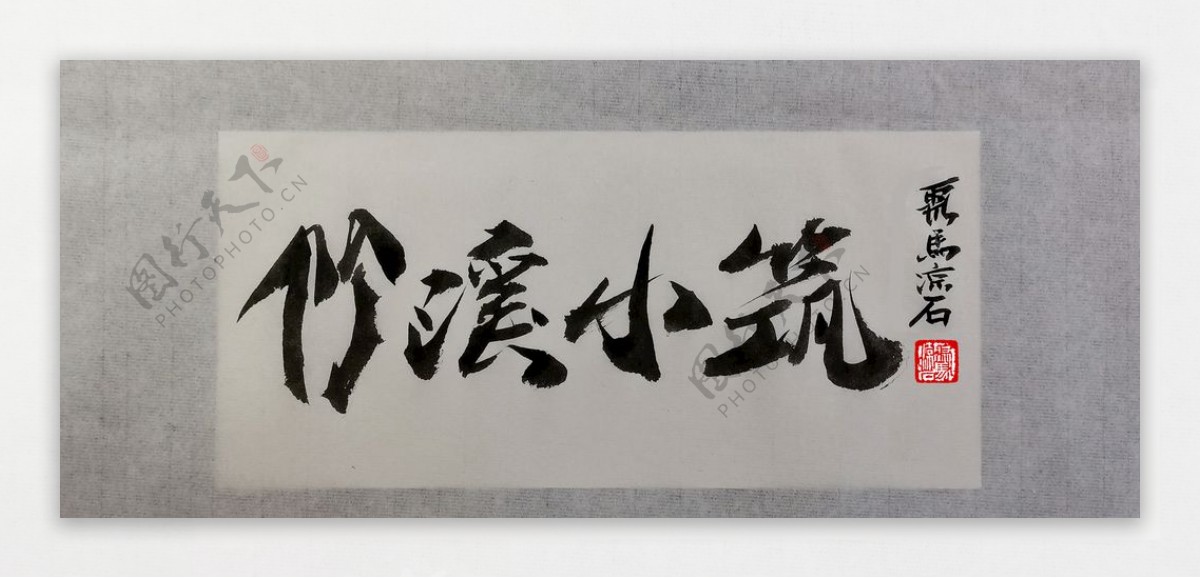 竹溪小筑
马凉石
图行天下
PHOTOPHOTO.CN
图行天下
PHOTOPHOTO.CN